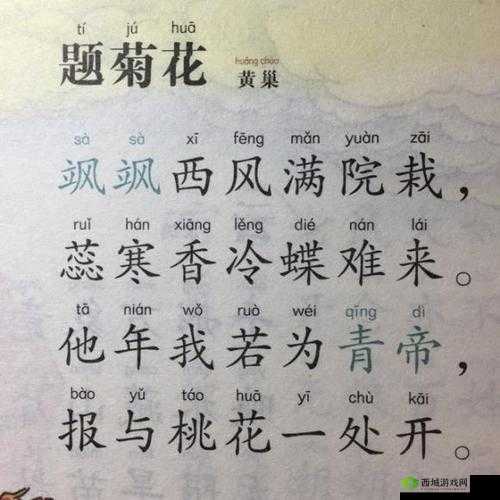 tí jú huā
题菊花
huáng cháo
黄巢
sà sà xī fēng mǎn yuàn zāi
飒飒西风满院栽，
ruǐ hán xiāng lěng dié nán lái
蕊寒香冷蝶难来。
tā nián wǒ ruò wéi qīng dì
他年我若为青帝，
bào yǔ táo huā yī chù kāi
报与桃花一处开。
西城游戏网